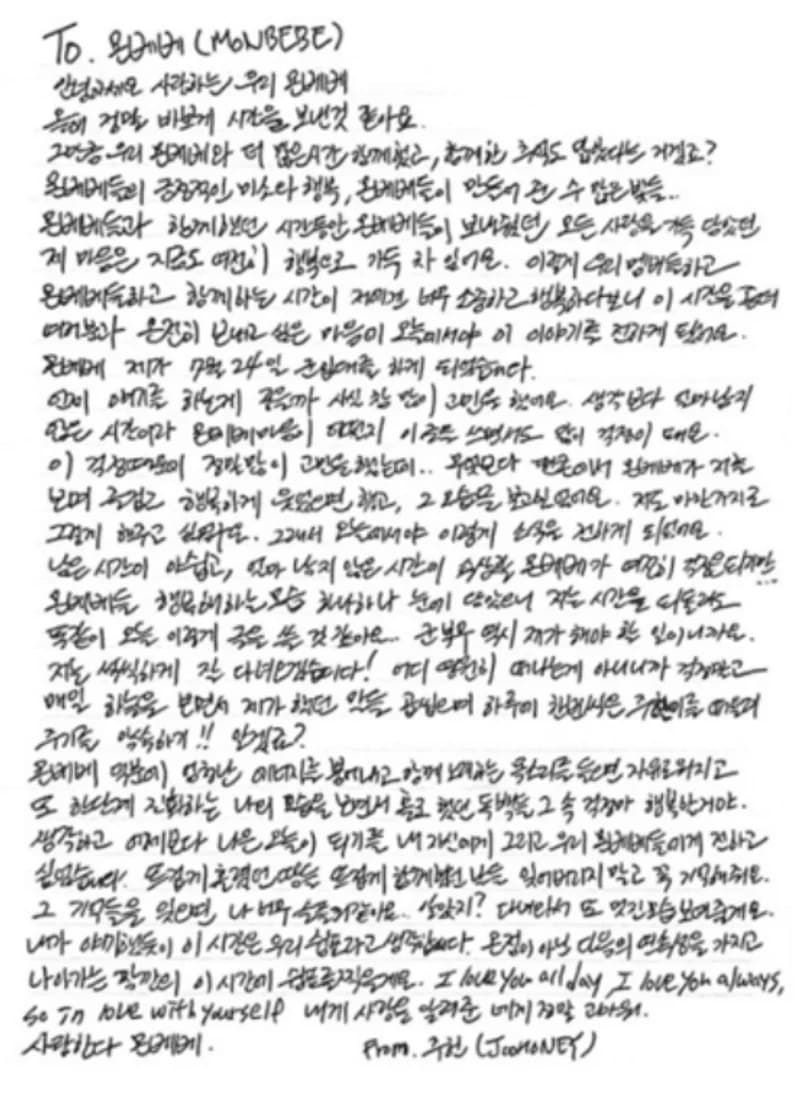 To. 몬베베 (MONBEBE)
안녕하세요 사랑하는 우리 몬베베
올해 정말 바쁘게 시간을 보낸것 같아요.
그만큼 우리 몬베베와 더 많은시간 함께했고, 함께한 추억도 많았다는 거겠죠?
몬베베들의 긍정적인 미소와 행복, 몬베베들이 만들어 준 수 많은 빛들..
몬베베들과 함께했던 시간동안 몬베베들이 보내줬던 모든 사랑을 가득 담았던
제 마음은 지금도 여전히 행복으로 가득 차 있어요. 이렇게 우리 멤버들하고
몬베베들하고 함께하는 시간이 저에겐 너무 소중하고 행복하다보니 이 시간을
여러분과 온전히 보내고 싶은 마음에 오늘에서야 이 이야기를 전하게 됐어요.
몬베베 제가 7월 24일 군입대를 하게 되었습니다.
먼저 얘기를 하는게 좋을까 사실 참 많이 고민을 했어요. 생각보다 얼마남지
않은 시간이라 몬베베마음이 어떤지 이 글을 쓰면서도 많이 걱정이 돼요.
이 걱정때문에 정말많이 고민을했는데.. 무엇보다 팬콘에서 몬베베가 저를
보며 즐겁고 행복하게 웃었으면 했고, 그 모습을 보고싶었어요. 저도 마찬가지로
그렇게 해주고 싶었구요. 그래서 오늘에서야 이렇게 소식을 전하게 되었어요.
남은 시간이 아쉽고, 얼마 남지 않은 시간이 속상할 몬베베가 여전히 걱정되지만...
몬베베들 행복해하는모습 하나하나 눈에 담았으니 저는 시간을 되돌려도
똑같이 오늘 이렇게 글을 쓸 것 같아요. 군복무 역시 제가 해야 할 일이니까요.
저는 씩씩하게 잘 다녀오겠습니다! 어디 영원히 떠나는게 아니니까 걱정말고
매일 하늘을 보면서 제가 했던 말들 곱씹으며 하루에 한번씩은 주헌이를 떠올려
주기를 약속하기!! 알겠죠?
몬베베 덕분에 엄청난 에너지를 뿜어내고 함께 노래하는 목소리를 들으면 자유로워지고
또 한단계 진화하는 나의 모습을 보면서 홀로 했던 독백들 그 속 걱정마 행복한거야.
생각하고 어제보다 나은 오늘이 되기를 내 자신에게 그리고 우리 몬베베들에게 전하고
싶었습니다. 뜨겁게 흘렸던 땀들 뜨겁게 함께했던 날들 잊어버리지 말고 꼭 기억해줘요.
그 기억들을 잊으면, 나 너무 슬플거같아요. 알았지? 다녀와서 또 멋진모습 보여줄게요.
내가 얘기했듯이 이 시간은 우리 쉼표라고 생각합니다. 온점이 아닌 다음의 연속성을 가지고
나아가는 잠깐의 이 시간에 쉼표를찍을게요. I love you all day I love you always,
so In love with yourself 내게 사랑을 알려준 네게 정말 고마워.
사랑한다 몬베베. From. 주헌 (JOOHONEY)